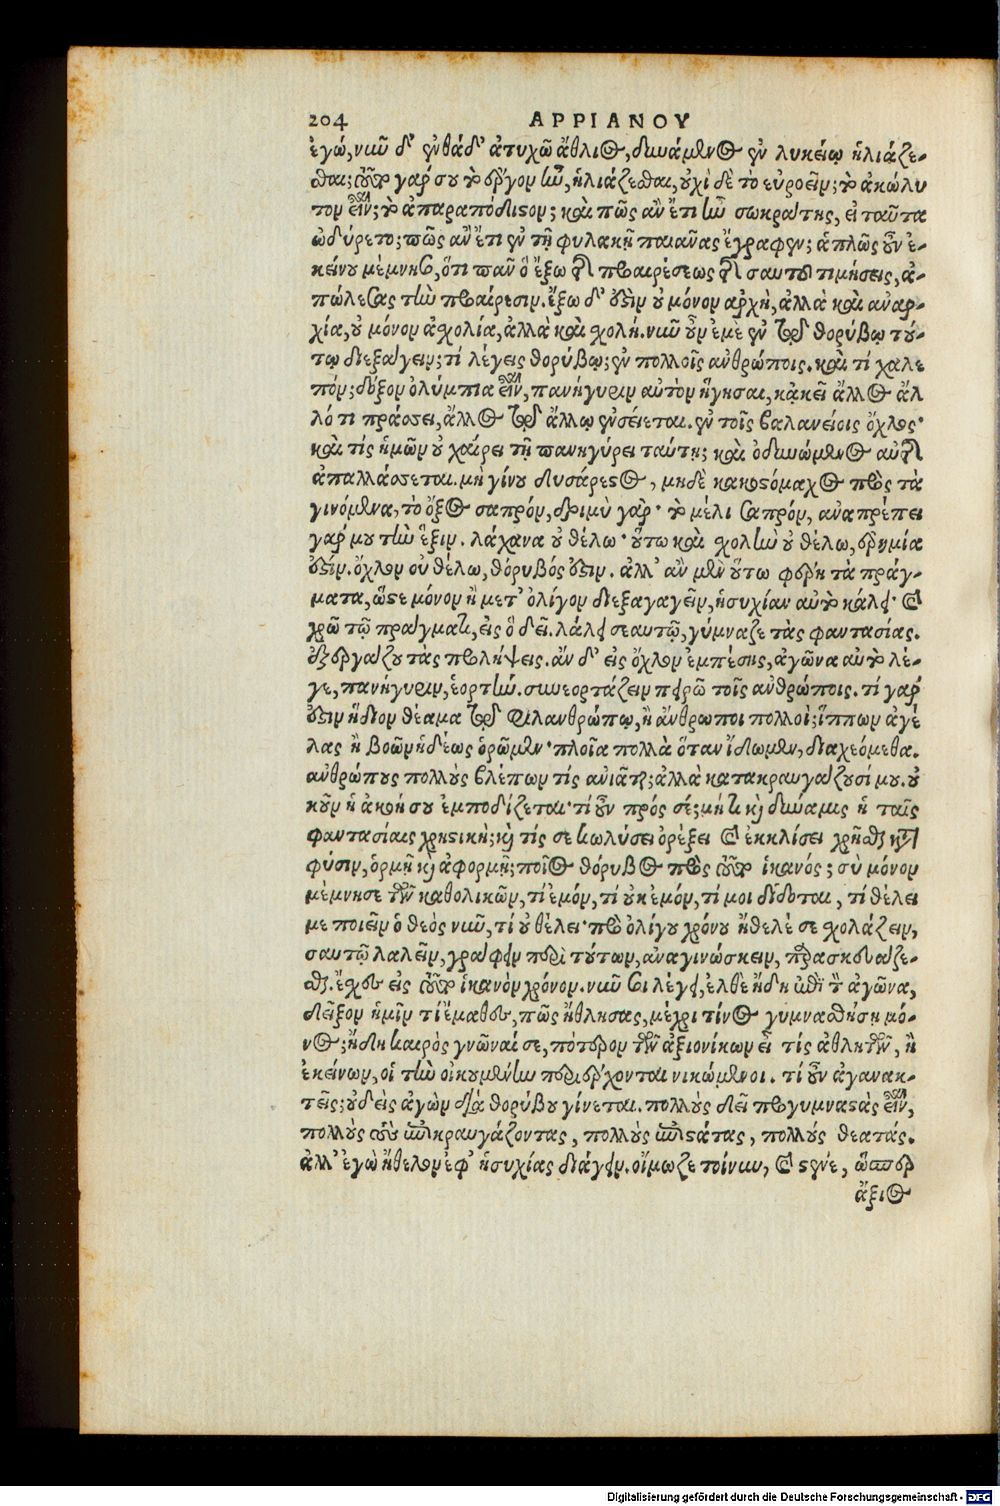 204 ΑΡΡΙΑΝΟΥ
ἐγώ, νῦν δ' ἐνθάδ' ἀτυχῶ ἄθλιος, δυνάμενος ἐν λυκείῳ ἡλιάζε-
σθαι; τοῦτο γάρ σου τὸ ἔργον ἦν, ἡλιάζεσθαι, οὐχὶ δὲ τὸ εὐροεῖν; τὸ ἀκώλυ
τον εἶναι; τὸ ἀπαραπόδιστον; καὶ πῶς ἂν ἔτι ἦν σωκράτης, εἰ ταῦτα
ὠδύρετο; πῶς ἂν ἔτι ἐν τῇ φυλακῇ παιᾶνας ἔγραφεν; ἁπλῶς οὖν ἐ-
κείνου μέμνησο, ὅτι πᾶν ὃ ἔξω τῆς προαιρέσεως τῆς σαυτοῦ τιμήσεις, ἀ-
πώλεσας τὴν προαίρεσιν. ἔξω δ' ἐστὶν οὐ μόνον ἀρχὴ, ἀλλὰ καὶ ἀναρ-
χία, οὐ μόνον ἀσχολία, ἀλλὰ καὶ σχολή. νῦν οὖν ἐμὲ ἐν τῷ θορύβῳ τού-
τῳ διεξάγειν; τί λέγεις θορύβῳ; ἐν πολλοῖς ἀνθρώποις. καὶ τί χαλε
πόν; δόξον ὀλύμπια εἶναι, πανήγυριν αὐτὸν ἥγησαι, κἀκεῖ ἄλλος ἄλ
λό τι πράσσει, ἄλλος τῷ ἄλλῳ ἐνσείεται. ἐν τοῖς βαλανείοις ὄχλος·
καὶ τίς ἡμῶν οὐ χαίρει τῇ πανηγύρει ταύτῃ; καὶ ὀδυνώμενος αὐτῆς
ἀπαλλάσσεται. μὴ γίνου δυσάρεστος, μηδὲ κακοστόμαχος πρὸς τὰ
γινόμενα, τὸ ὄξος σαπρόν, δριμὺ γάρ· τὸ μέλι σαπρόν, ἀναπρέπει
γάρ μου τὴν ἕξιν. λάχανα οὐ θέλω· οὕτω καὶ σχολὴν οὐ θέλω, ἐρημία
ἐστίν. ὄχλον οὐ θέλω, θόρυβός ἐστιν. ἀλλ' ἂν μὲν οὕτω φέρῃ τὰ πράγ-
ματα, ὥστε μόνον ἢ μετ' ὀλίγον διεξαγαγεῖν, ἡσυχίαν αὐτὸ κάλει· καὶ
χρῶ τῷ πράγματι, εἰς ὃ δεῖ. λάλει σεαυτῷ, γύμναζε τὰς φαντασίας.
ἐξεργάζου τὰς προλήψεις. ἂν δ' εἰς ὄχλον ἐμπέσῃς, ἀγῶνα αὐτὸ λέ-
γε, πανήγυριν, ἑορτήν. συνεορτάζειν πειρῶ τοῖς ἀνθρώποις. τί γάρ
ἐστιν ἥδιον θέαμα τῷ φιλανθρώπῳ, ἢ ἄνθρωποι πολλοί; ἵππων ἀγέ
λας ἢ βοῶν ἡδέως ὁρῶμεν· πλοῖα πολλὰ ὅταν ἴδωμεν, διαχεόμεθα.
ἀνθρώπους πολλοὺς βλέπων τίς ἀνιᾶται; ἀλλὰ κατακραυγάζουσί μου. οὐ
κοῦν ἡ ἀκοή σου ἐμποδίζεται· τί οὖν πρός σε; μή τι καὶ δύναμις ἡ ταῖς
φαντασίαις χρηστική; καὶ τίς σε κωλύσει ὀρέξει καὶ ἐκκλίσει χρῆσθαι κατὰ
φύσιν, ὁρμῇ καὶ ἀφορμῇ; ποῖος θόρυβος πρὸς τοῦτο ἱκανός; σὺ μόνον
μέμνησο τῶν καθολικῶν, τί ἐμόν, τί οὐκ ἐμόν, τί μοι δίδοται, τί θέλει
με ποιεῖν ὁ θεὸς νῦν, τί οὐ θέλει· πρὸ ὀλίγου χρόνου ἤθελέ σε σχολάζειν,
σαυτῷ λαλεῖν, γράφειν περὶ τούτων, ἀναγινώσκειν, παρασκευάζε-
σθαι. ἔσχες εἰς τοῦτο ἱκανὸν χρόνον. νῦν σοι λέγει, ἐλθὲ ἤδη ἐπὶ τὸν ἀγῶνα,
δεῖξον ἡμῖν τί ἔμαθες, πῶς ἤθλησας, μέχρι τίνος γυμνασθήσῃ μό-
νος; ἤδη καιρὸς γνῶναί σε, πότερον τῶν ἀξιονίκων εἶ τίς ἀθλητῶν, ἢ
ἐκείνων, οἳ τὴν οἰκουμένην περιέρχονται νικώμενοι. τί οὖν ἀγανακ-
τεῖς; οὐδεὶς ἀγὼν δίχα θορύβου γίνεται. πολλοὺς δεῖ προγυμναστὰς εἶναι,
πολλοὺς τοὺς ἐπικραυγάζοντας, πολλοὺς ἐπιστάτας, πολλούς θεατάς.
ἀλλ' ἐγὼ ἤθελον ἐφ' ἡσυχίας διάγειν. οἴμωζε τοίνυν, καὶ στένε, ὥσπερ
ἄξιος
Digitalisierung gefördert durch die Deutsche Forschungsgemeinschaft - DFG